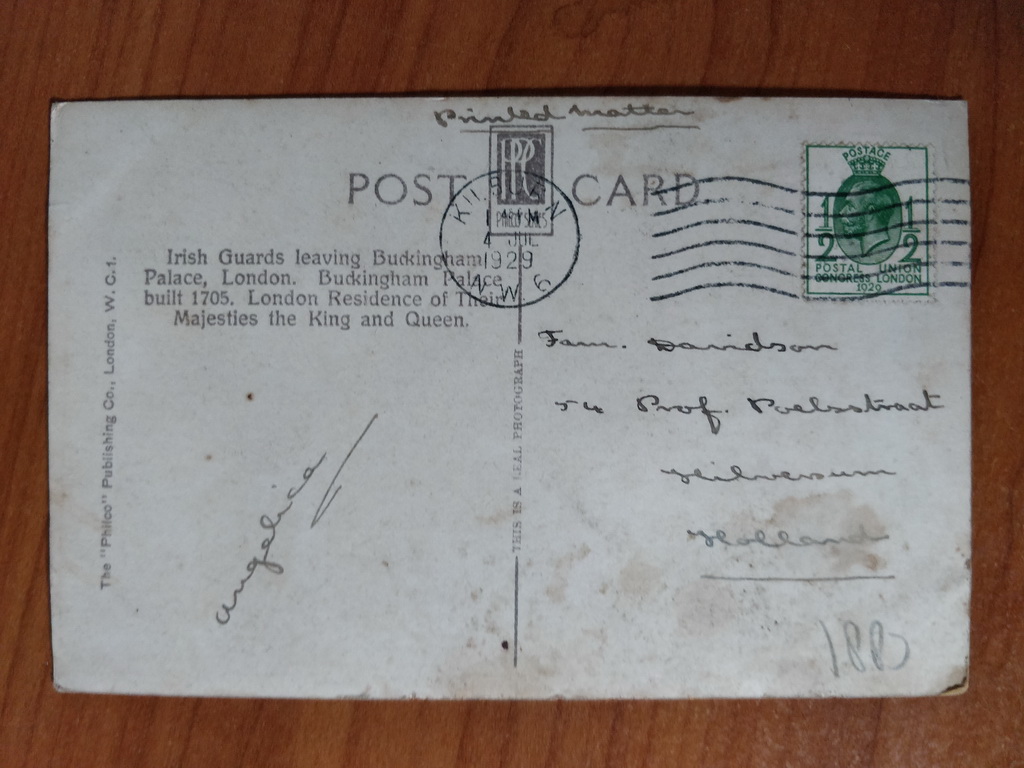 Printed matter
POST CARD
PPC
PHILCO SERIES
KILBURN
1 AM
4 JUL
1929
N.W.6
POSTAGE
1/2 1/2
POSTAL UNION
CONGRESS LONDON
1929
Irish Guards leaving Buckingham
Palace, London. Buckingham Palace
built 1705. London Residence of Their
Majesties the King and Queen.
The "Philco" Publishing Co., London, W.C.1.
THIS IS A REAL PHOTOGRAPH
Fam. Davidson
Prof. Poelsstraat
Hilversum
Holland
Angelica